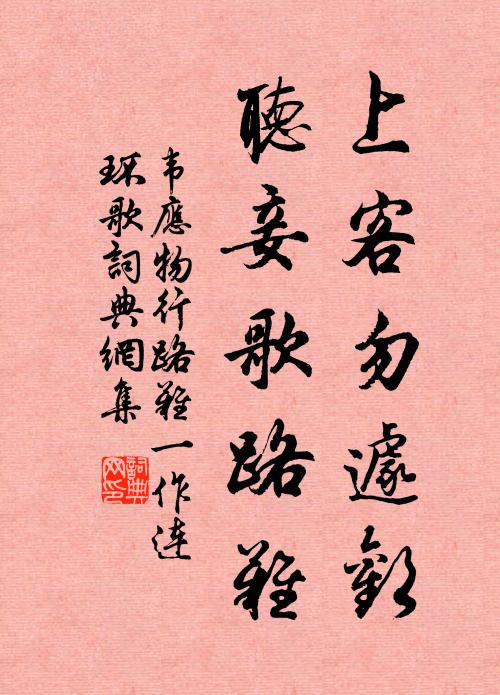 上客勿遽歡
聽妾歌路難
韦應物行路難一作連
環歌詞典網集
詞典网印